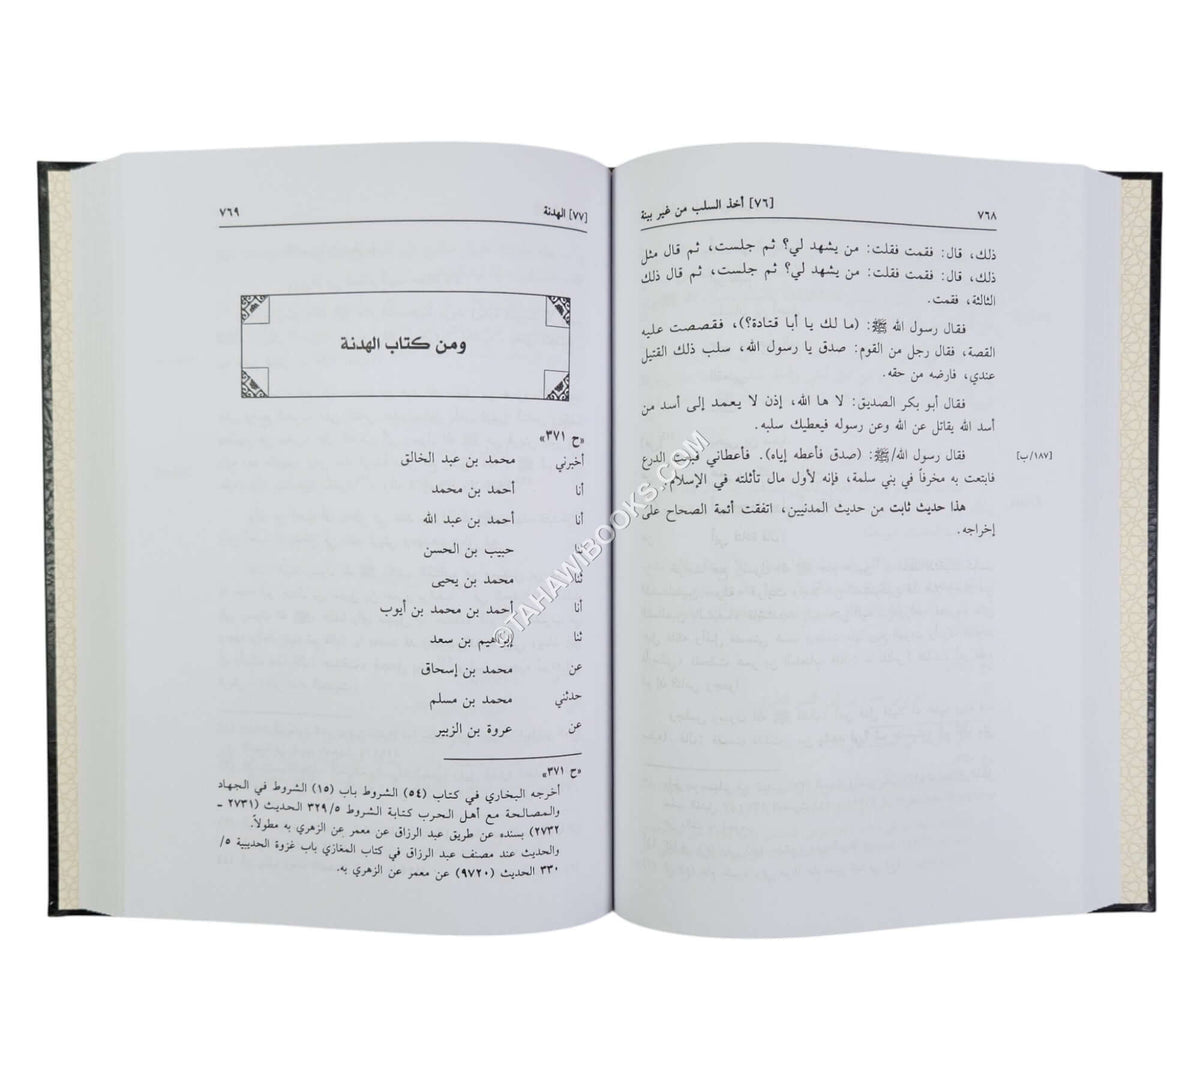 ٧٦٨ [٧٦] أخذ السلب من غير بينة
ذلك، قال: فقمت فقلت: من يشهد لي؟ ثم جلست، ثم قال مثل
ذلك، قال: فقمت فقلت: من يشهد لي؟ ثم جلست، ثم قال ذلك
الثالثة، فقمت.
فقال رسول الله ﷺ: (ما لك يا أبا قتادة؟)، فقصصت عليه
القصة، فقال رجل من القوم: صدق يا رسول الله، سلب ذلك القتيل
عندي، فارضه من حقه.
فقال أبو بكر الصديق: لا ها الله، إذن لا يعمد إلى أسد من
أسد الله يقاتل عن الله وعن رسوله فيعطيك سلبه.
[١٨٧/ب] فقال رسول الله/ﷺ: (صدق فأعطه إياه). فأعطاني فبعت الدرع
فابتعت به مخرفاً في بني سلمة، فإنه لأول مال تأثلته في الإسلام.
هذا حديث ثابت من حديث المدنيين، اتفقت أئمة الصحاح على
إخراجه.
[٧٧] الهدنة ٧٦٩
ومن كتاب الهدنة
«ح ٣٧١»
أخبرني محمد بن عبد الخالق
أنا أحمد بن محمد
أنا أحمد بن عبد الله
ثنا حبيب بن الحسن
ثنا محمد بن يحيى
أنا أحمد بن محمد بن أيوب
ثنا إبراهيم بن سعد
عن محمد بن إسحاق
حدثني محمد بن مسلم
عن عروة بن الزبير
«ح ٣٧١»
أخرجه البخاري في كتاب (٥٤) الشروط باب (١٥) الشروط في الجهاد
والمصالحة مع أهل الحرب كتابة الشروط ٣٢٩/٥ الحديث (٢٧٣١ ـ
٢٧٣٢) بسنده عن طريق عبد الرزاق عن معمر عن الزهري به مطولاً.
والحديث عند مصنف عبد الرزاق في كتاب المغازي باب غزوة الحديبية ٥/
٣٣٠ الحديث (٩٧٢٠) عن معمر عن الزهري به.
©TAHAWIBOOKS.COM